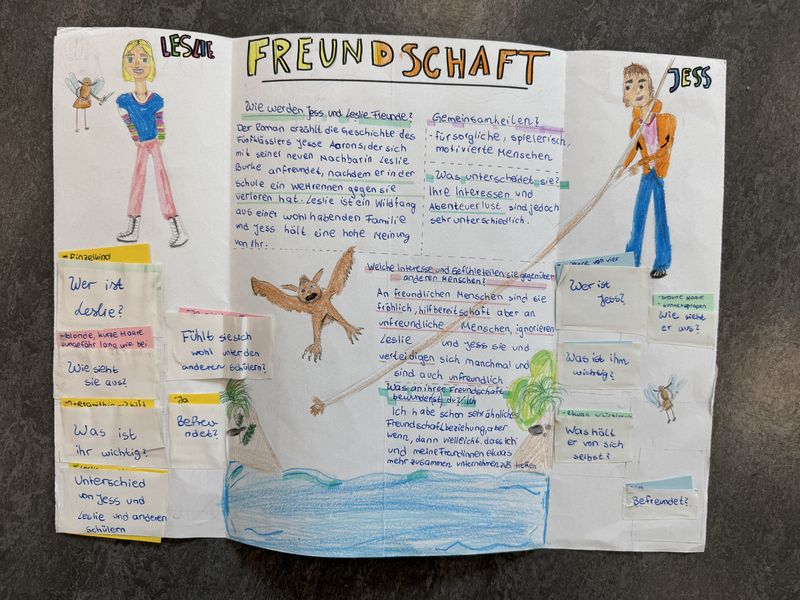 LESLIE
FREUNDSCHAFT
JESS
Wie werden Jess und Leslie Freunde?
Der Roman erzählt die Geschichte des
Fünfklässlers Jesse Aarons, der sich
mit seiner neuen Nachbarin Leslie
Burke anfreundet, nachdem er in der
Schule ein Wettrennen gegen sie
verloren hat. Leslie ist ein Wildfang
aus einer wohlhabenden Familie
und Jess hält eine hohe Meinung
von ihr.
Gemeinsamheiten?
- fürsorgliche, spielerisch,
motivierte Menschen
Was unterscheidet sie?
Ihre Interessen und
Abenteuerlust sind jedoch
sehr unterschiedlich.
Welche Interesse und Gefühle teilen sie gegenüber
anderen Menschen?
An freundlichen Menschen sind sie
fröhlich, hilfbereitschaft aber an
unfreundliche Menschen, ignorieren
Leslie und Jess sie und
verteidigen sich manchmal und
sind auch unfreundlich
Was an ihrer Freundschaft
bewunderst du?/Ich
Ich habe schon sehr ähnliche
Freundschaftbeziehung, aber
wenn, dann vielleicht, dass ich
und meine Freundinnen etwas
mehr zusammen unternehmen, z.B treffen
Einzelkind
Wer ist
Leslie?
blonde, kurze Haare
ungefähr lang wie bei
Wie sieht
sie aus?
Was ist
ihr wichtig?
Unterschied
von Jess und
Leslie und anderen
schülern
Fühlt sie sich
wohl unter den
anderen Schülern?
Ja
Befreu-
ndet?
Wer ist
Jess?
braune Haare
Wie sieht
er aus?
Was ist ihm
wichtig?
Was hält
er von sich
selbst?
Befreundet?